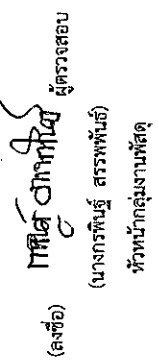 (ลงชื่อ) ผู้ตรวจสอบ
(นางกรพินฐ์ สรรพพันธ์)
หัวหน้ากลุ่มงานพัสดุ